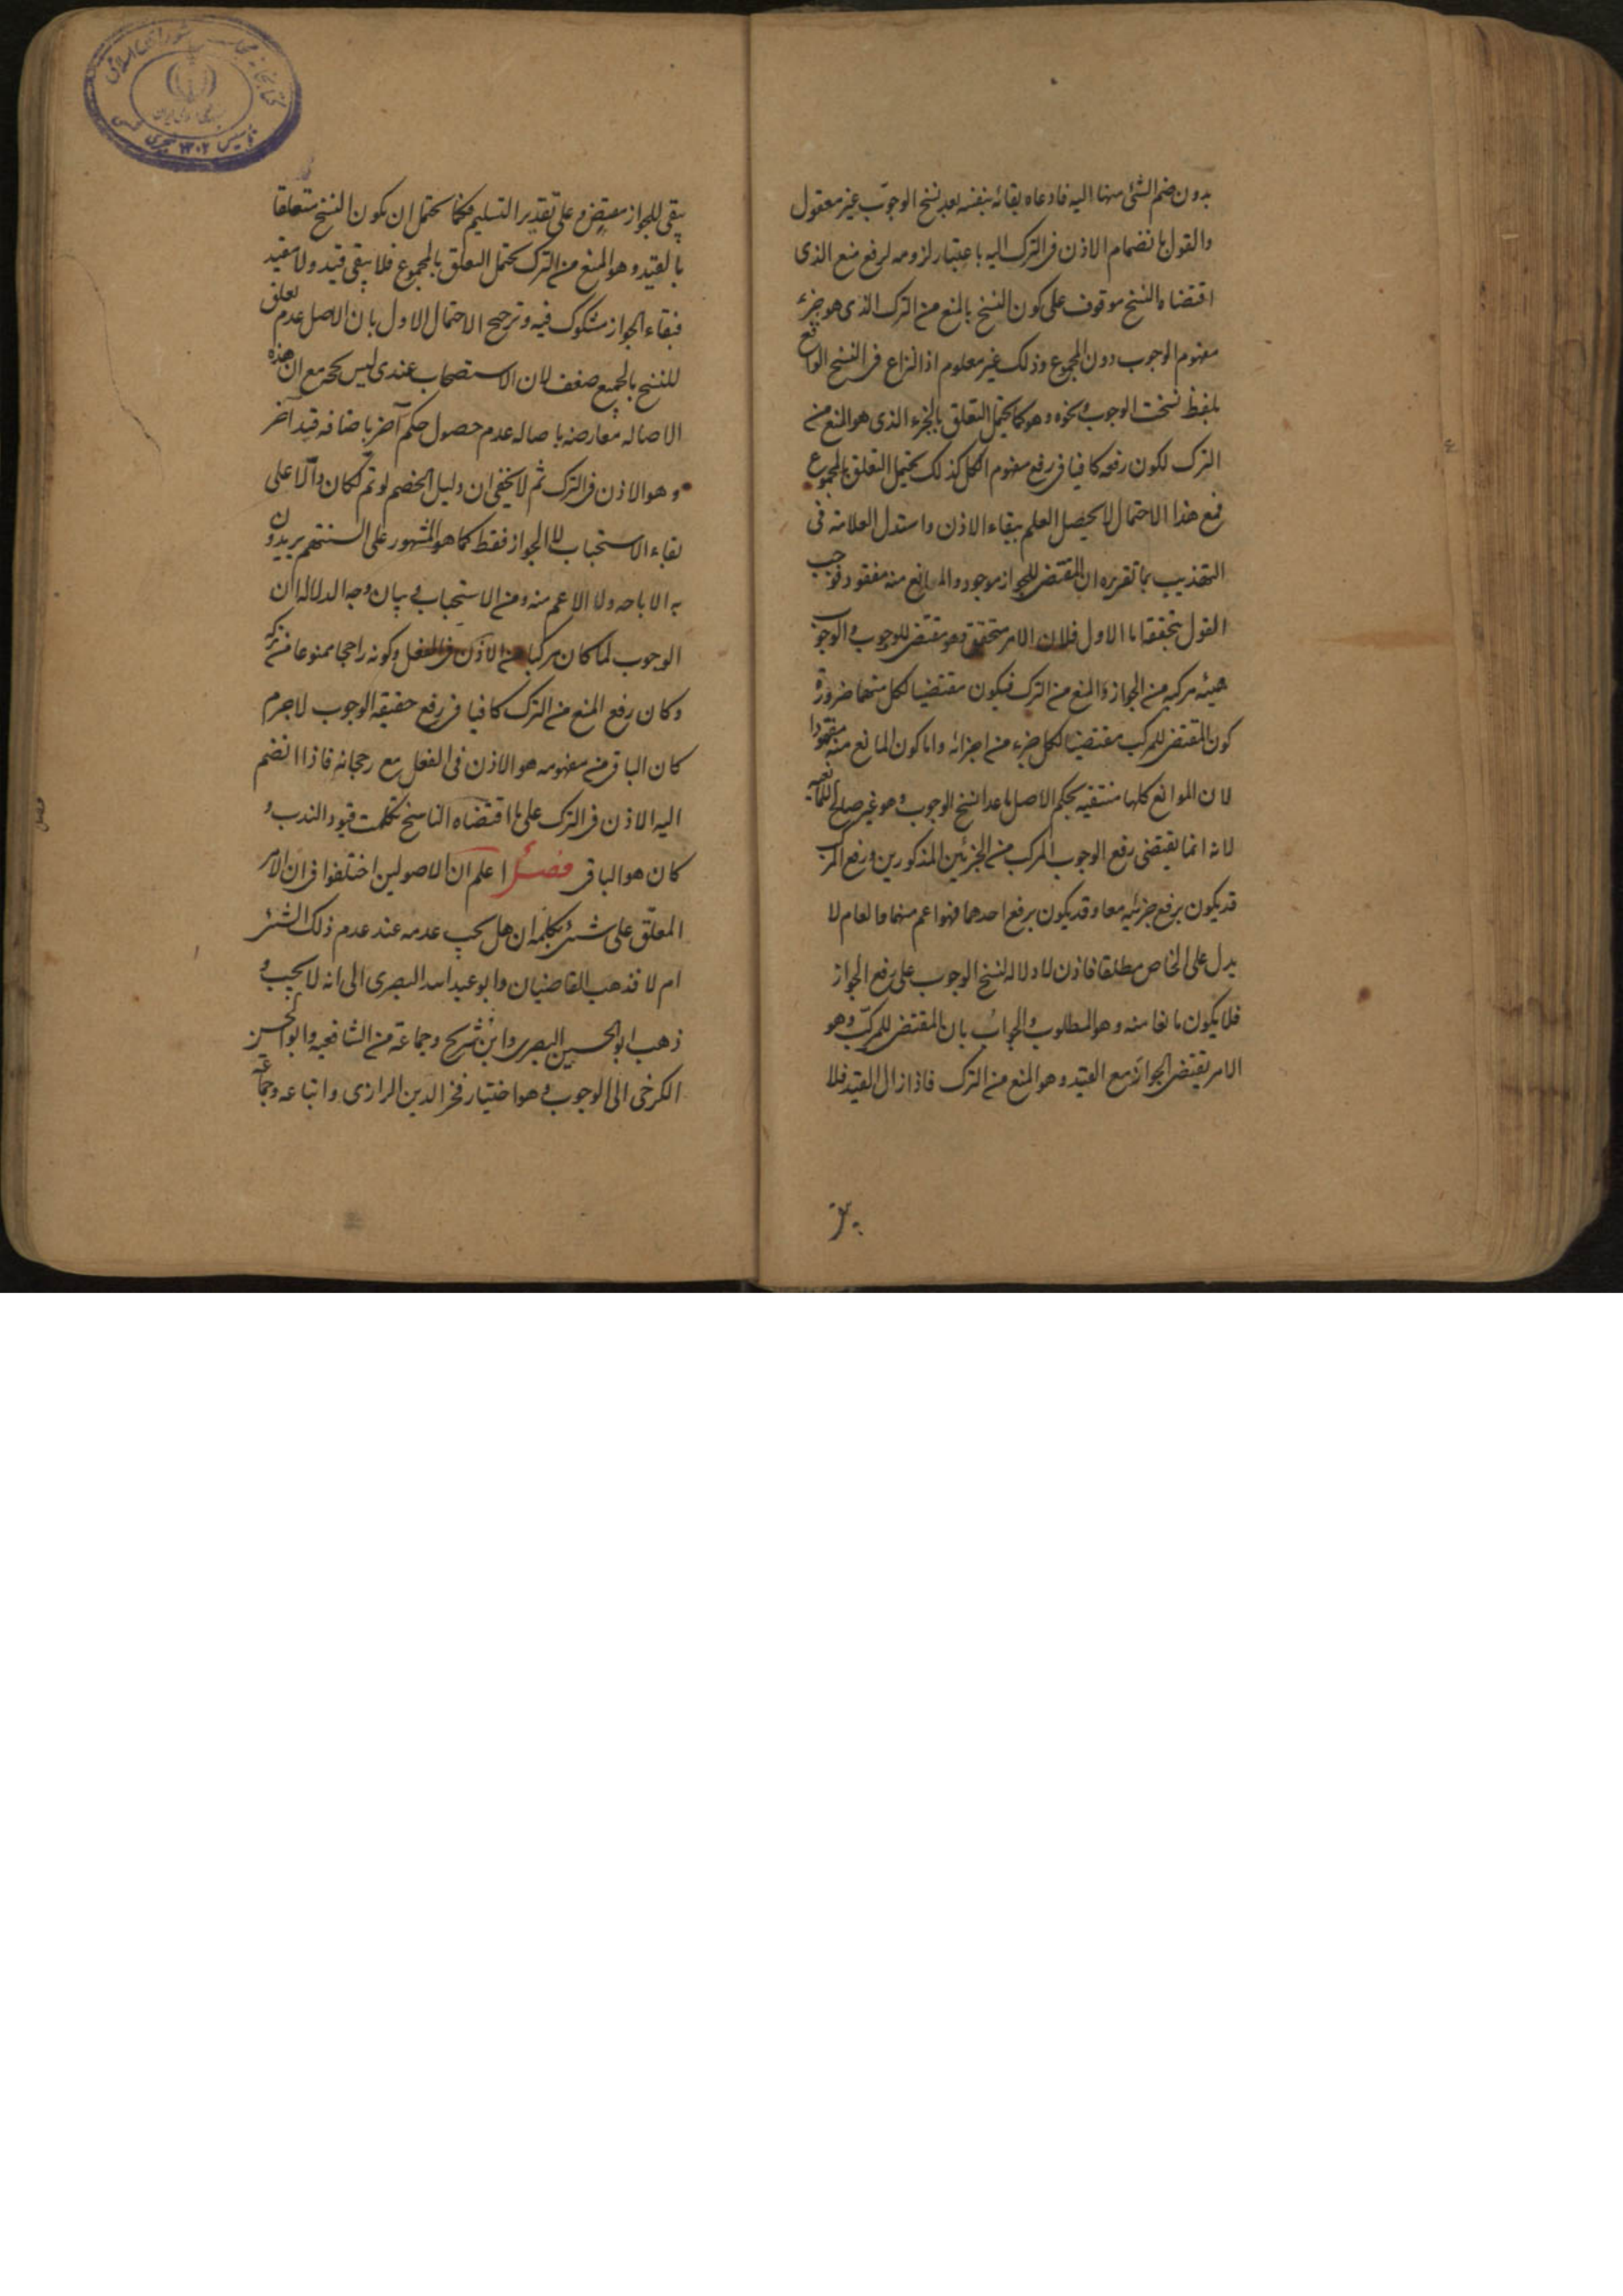 بدون ضم الشئی منها الیه فادعاه بقائه بنفسه بعد نسخ الوجوب غیر معقول
والقول بانضمام الاذن فی الترک الیه باعتبار لزومه لرفع منع الذی
اقتضاه النسخ موقوف علی کون النسخ بالمنع من الترک الذی هو جزء
مفهوم الوجوب دون المجموع وذلک غیر معلوم اذ النزاع فی النسخ الواقع
بلفظ نسخت الوجوب ونحوه وهو کما یحتمل التعلق بالجزء الذی هو المنع من
الترک لکون رفعه کافیا فی رفع مفهوم الکل کذلک یحتمل التعلق بالمجموع
فمع هذا الاحتمال لا یحصل العلم ببقاء الاذن واستدل العلامه فی
التهذیب بما تقریره ان المقتضی للجواز موجود والمانع منه مفقود فوجب
القول بتحققه اما الاول فلان الامر متحقق وهو مقتض للوجوب والوجوب
هیئه مرکبه من الجواز والمنع من الترک فیکون مقتضیا لکل منهما ضرورة
کون المقتضی للمرکب مقتضیا لکل جزء من اجزائه واما کون المانع منه مفقودا
لان الموانع کلها منتفیه بحکم الاصل ما عدا نسخ الوجوب وهو غیر صالح للمانعیه
لانه انما یقتضی رفع الوجوب المرکب من الجزئین المذکورین ورفع المرکب
قد یکون برفع جزئیه معا وقد یکون برفع احدهما فهو اعم منهما والعام لا
یدل علی الخاص مطلقا فاذن لا دلاله لنسخ الوجوب علی رفع الجواز
فلا یکون مانعا منه وهو المطلوب والجواب بان المقتضی للمرکب وهو
الامر یقتضی الجواز مع القید وهو المنع من الترک فاذا زال القید فلا
یبقی للجواز مقتض وعلی تقدیر التسلیم فکما یحتمل ان یکون النسخ متعلقا
بالقید وهو المنع من الترک یحتمل التعلق بالمجموع فلا یبقی قید ولا مقید
فبقاء الجواز مشکوک فیه وترجیح الاحتمال الاول بان الاصل عدم تعلق
النسخ بالجمیع ضعف لان الاستصحاب عندی لیس بحجة مع ان هذه
الاصاله معارضه باصاله عدم حصول حکم آخر باضافه قید آخر
وهو الاذن فی الترک ثم لا یخفی ان دلیل الخصم لو تم لکان دالا علی
بقاء الاستحباب لا الجواز فقط کما هو المشهور علی السنتهم یریدون
به الاباحه ولا الاعم منه ومن الاستحباب بیان وجه الدلاله ان
الوجوب لما کان مرکبا من الاذن فی الفعل وکونه راجحا ممنوعا من ترکه
وکان رفع المنع من الترک کافیا فی رفع حقیقه الوجوب لاجرم
کان الباقی من مفهومه هو الاذن فی الفعل مع رجحانه فاذا انضم
الیه الاذن فی الترک علی ما اقتضاه الناسخ تکملت قیود الندب و
کان هو الباقی فصل اعلم ان الاصولین اختلفوا فی ان الامر
المعلق علی شئ بکلمه ان هل یجب عدمه عند عدم ذلک الشئ
ام لا فذهب القاضیان وابو عبد الله البصری الی انه لا یجب و
ذهب ابو الحسین البصری وابن شریح وجماعة من الشافعیه وابو الحسن
الکرخی الی الوجوب وهو اختیار فخر الدین الرازی واتباعه وجماعة